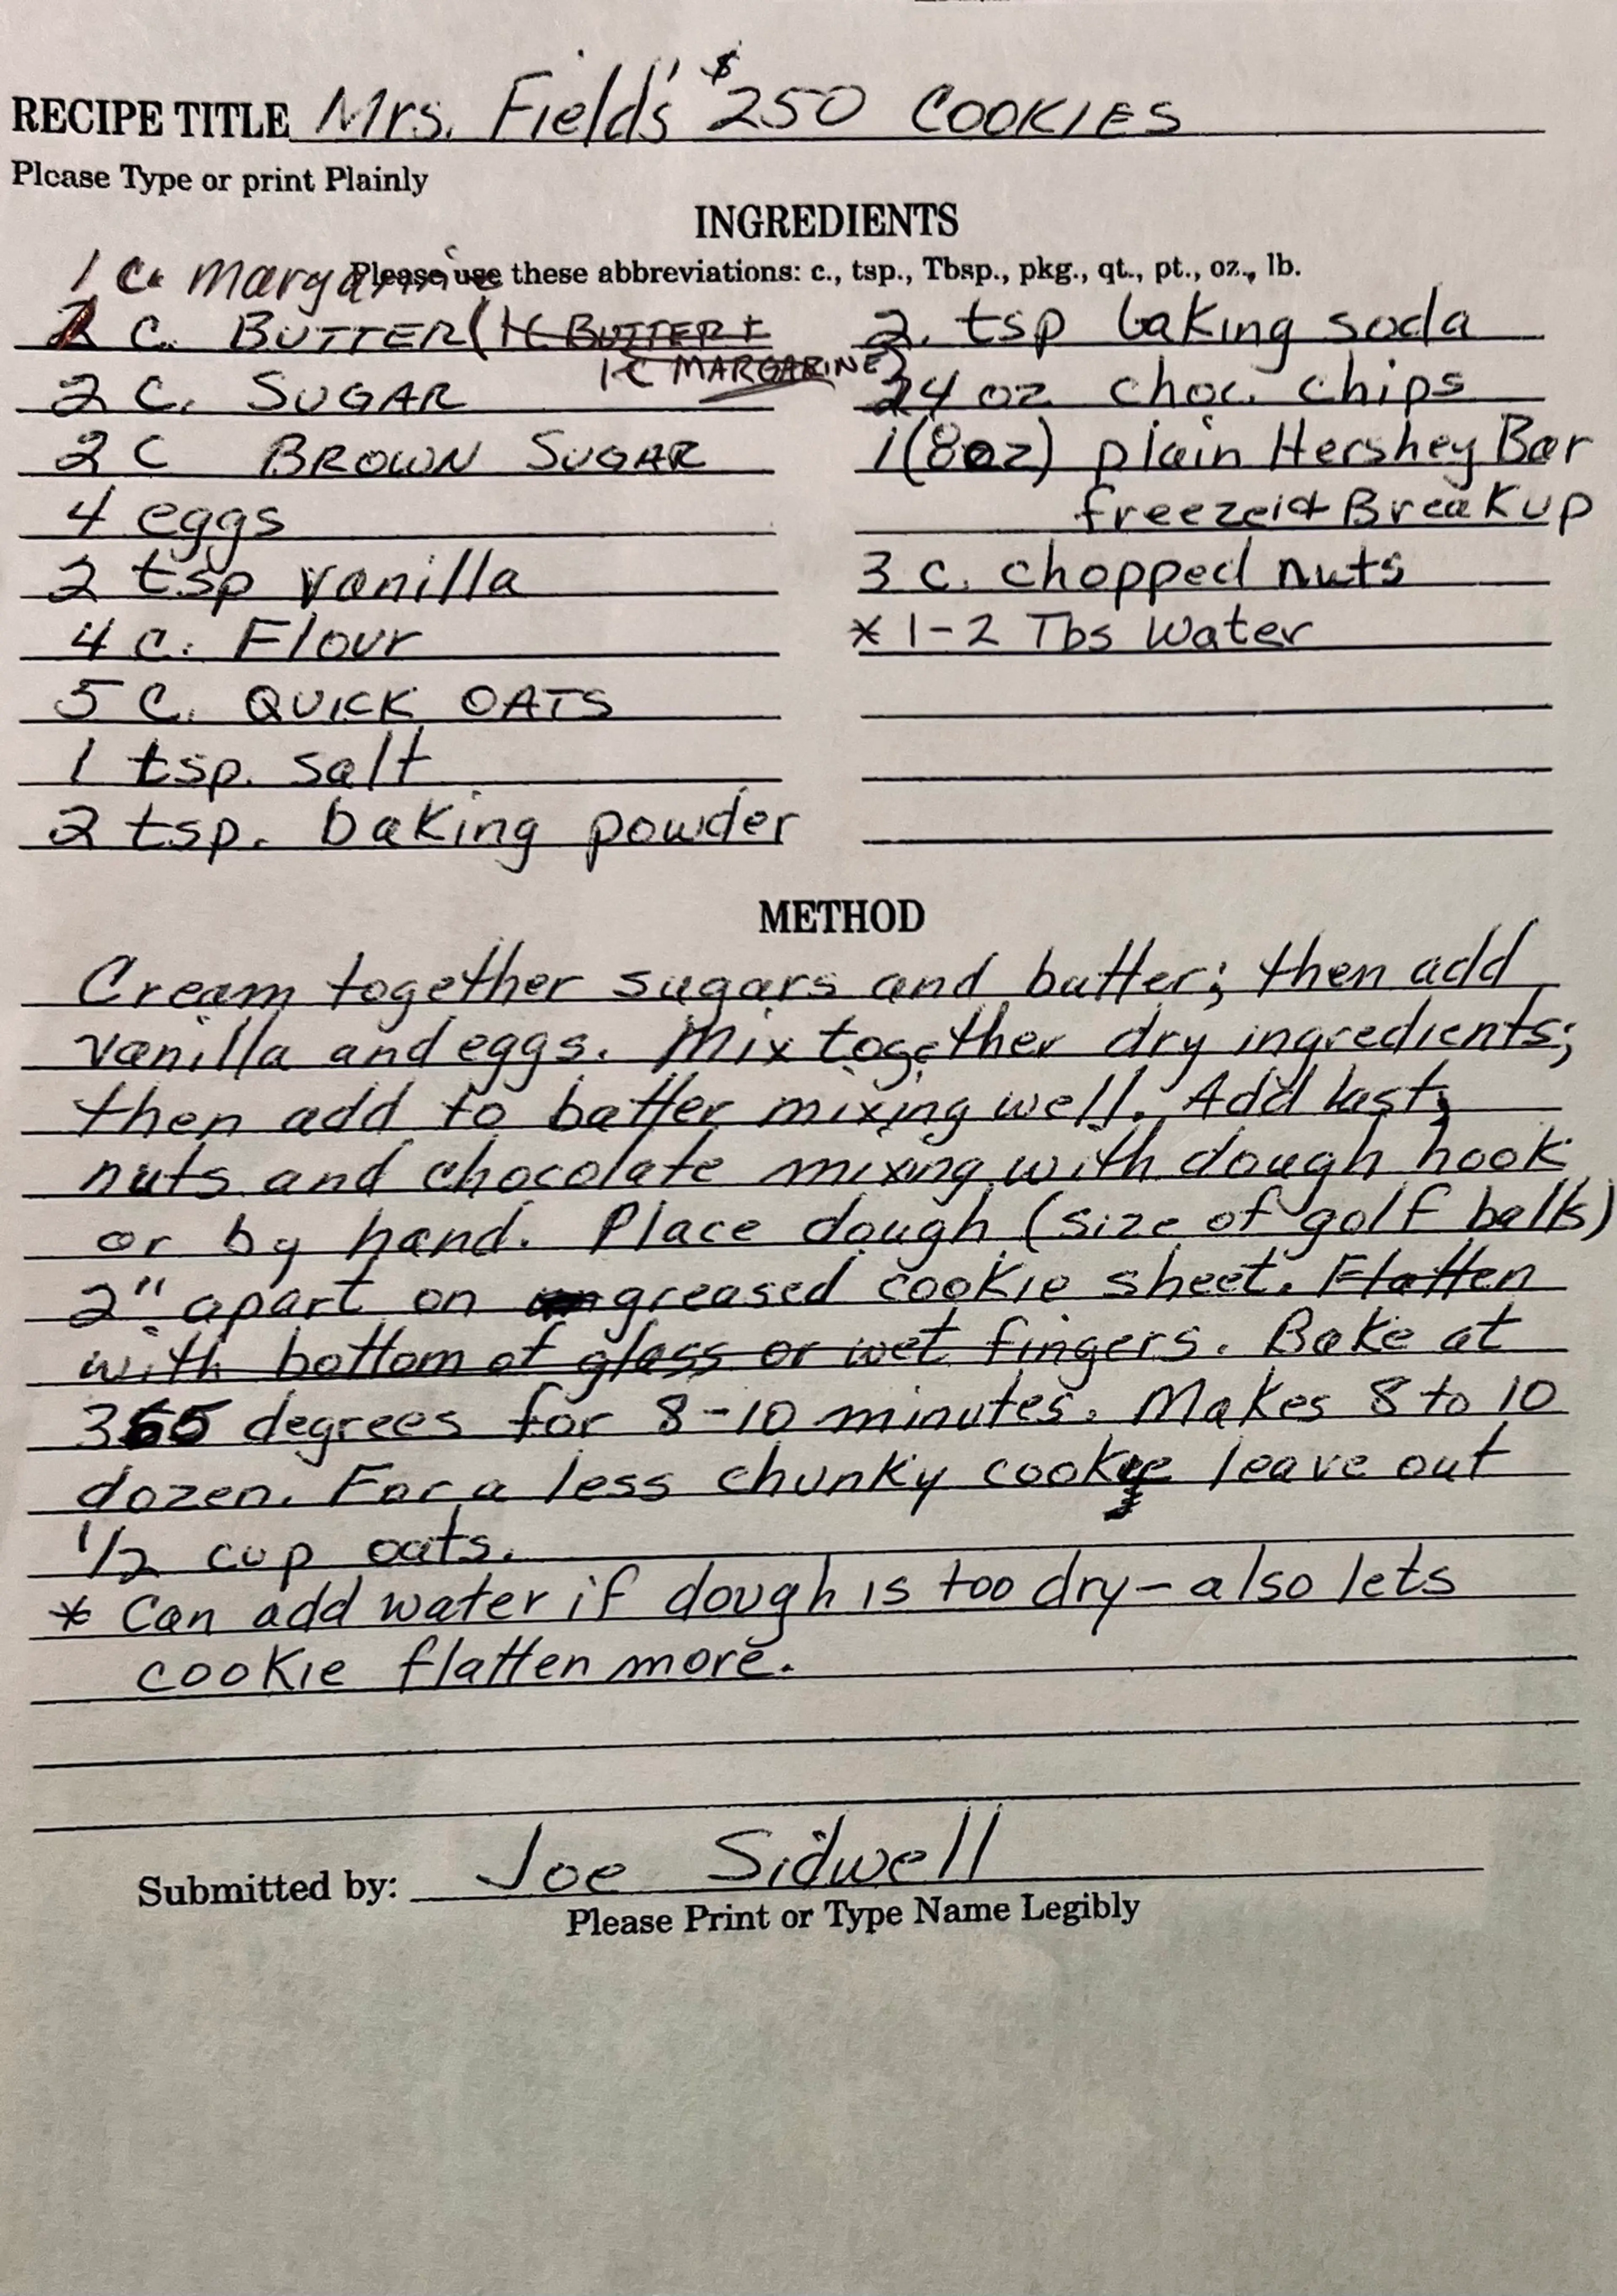 RECIPE TITLE Mrs. Field's $250 COOKIES
Please Type or print Plainly
INGREDIENTS
Please use these abbreviations: c., tsp., Tbsp., pkg., qt., pt., oz., lb.
1 c. margarine
C. BUTTER (1C BUTTER +
1C MARGARINE)
2 C. SUGAR
2 C BROWN SUGAR
4 eggs
2 tsp vanilla
4 c. Flour
5 C. QUICK OATS
1 tsp. salt
2 tsp. baking powder
2. tsp baking soda
24 oz choc. chips
1 (8oz) plain Hershey Bar
freeze it + Break up
3 c. chopped nuts
* 1-2 Tbs Water
METHOD
Cream together sugars and butter; then add
vanilla and eggs. Mix together dry ingredients;
then add to batter mixing well. Add last,
nuts and chocolate mixing with dough hook
or by hand. Place dough (size of golf balls)
2" apart on greased cookie sheet. Flatten
with bottom of glass or wet fingers. Bake at
degrees for 8-10 minutes. Makes 8 to 10
dozen. For a less chunky cookie leave out
1/2 cup oats.
* Can add water if dough is too dry - also lets
cookie flatten more.
Submitted by: Joe Sidwell
Please Print or Type Name Legibly